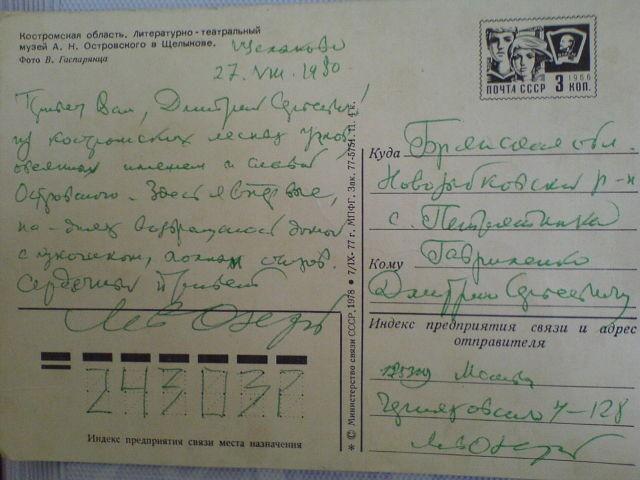 Костромская область. Литературно-театральный
музей А. Н. Островского в Щелыкове.
Фото В. Гаспарянца
Щелыково
27.VIII.1980
Привет Вам, Дмитрий Сергеевич!
из костромских лесных
овеянных именем и славой
Островского. Здесь я впервые,
на-днях возвращаюсь домой
с лукошком,
Сердечный привет
Лев Озеров
1966
ПОЧТА СССР 3 КОП.
Куда Брянская обл.
Новозыбковский р-н
с.
Кому Гавриленко
Дмитрию Сергеевичу
Индекс предприятия связи и адрес
отправителя
Москва
Черняховского 4-128
Лев Озеров
243037
Индекс предприятия связи места назначения
* © Министерство связи СССР, 1978 ● 7/IX-77 г. МПФГ. Зак. 77-5751. П. 4 к.